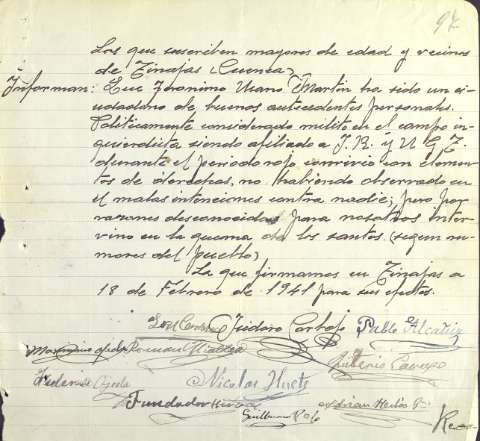 97
Los que suscriben mayores de edad y vecinos
de Tinajas (Cuenca)
Informan: Que Jeronimo Utano Martin ha sido un ci-
udadano de buenos antecedentes personales.
Politicamente considerado milito en el campo iz-
quierdista siendo afiliado a I.R. y U.G.T.
durante el periodo rojo convivio con elemen-
tos de derechas, no habiendo observado en
el malas intenciones contra nadie; pero por
razones desconocidas para nosotros inter-
vino en la quema de los santos (segun ru-
mores del pueblo)
La que firmamos en Tinajas a
18 de Febrero de 1941 para sus efectos.
Isidoro Pablo Alcañiz
Roman
Federico Ojeda Nicolas
Fundador
Guillermo Adrian